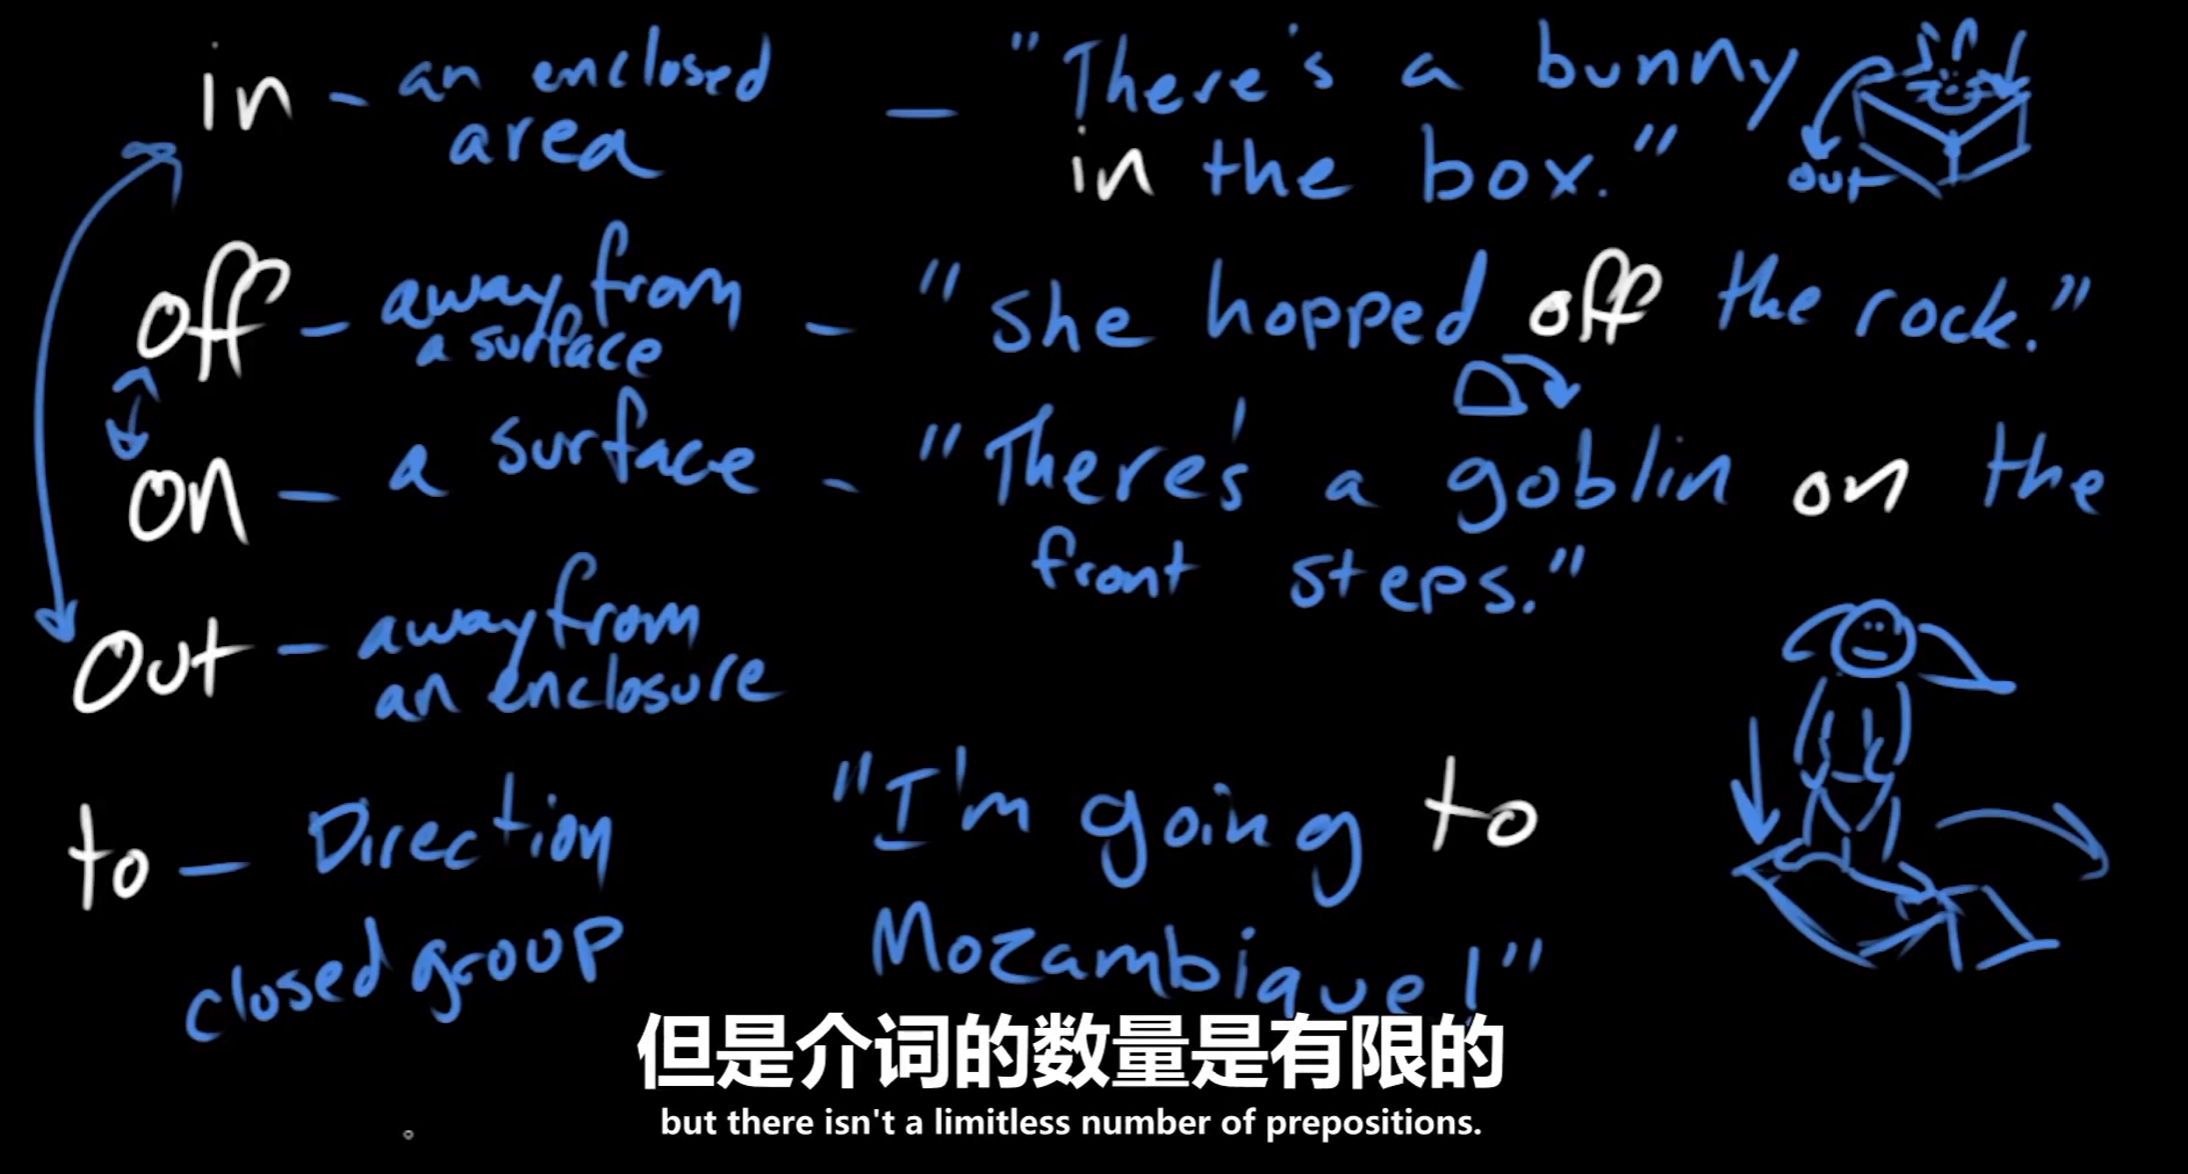 in - an enclosed
area
- "There's a bunny
in the box."
out
off - away from
a surface
- "she hopped off the rock."
on - a surface - "There's a goblin on the
front steps."
out - away from
an enclosure
to - Direction
closed group
"I'm going to
Mozambique!"
但是介词的数量是有限的
but there isn't a limitless number of prepositions.